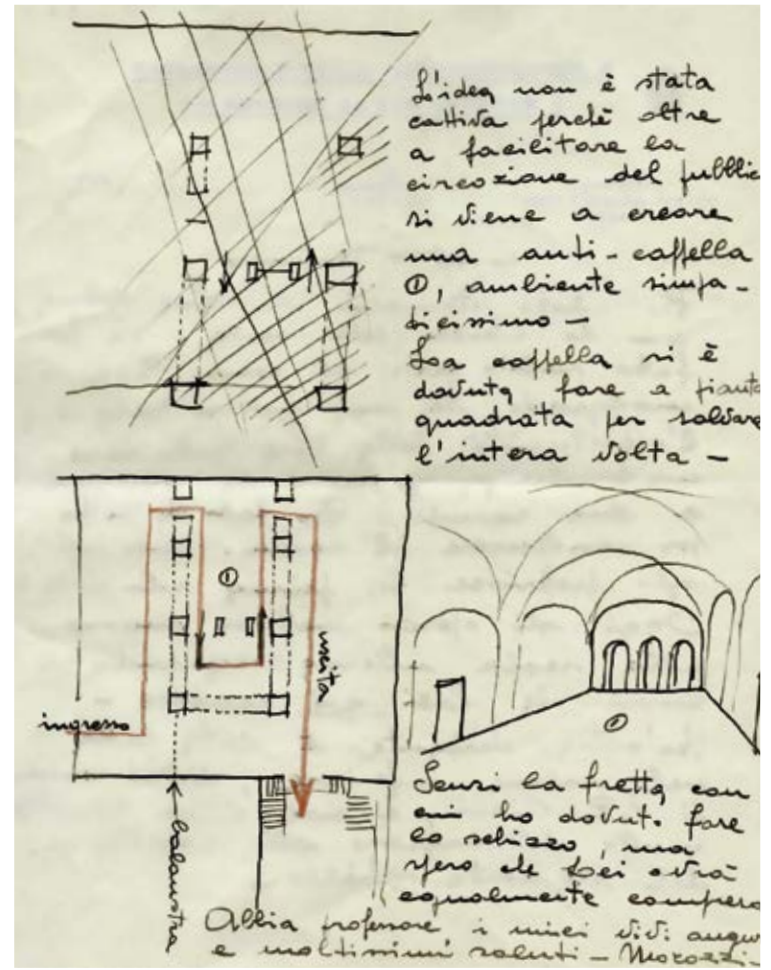 L'idea non è stata
cattiva perchè oltre
a facilitare la
circozione del pubblic
si viene a creare
una anti-cappella
①, ambiente simpa-
ticissimo —
La cappella si è
dovuta fare a pianta
quadrata per salvare
l'intera volta —
①
ingresso
uscita
balaustra
①
Scusi la fretta con
cui ho dovut. fare
lo schizzo, ma
spero che Lei avrà
egualmente compreso
Abbia professore i miei vivi augu
e moltissimi saluti — Morozzi —